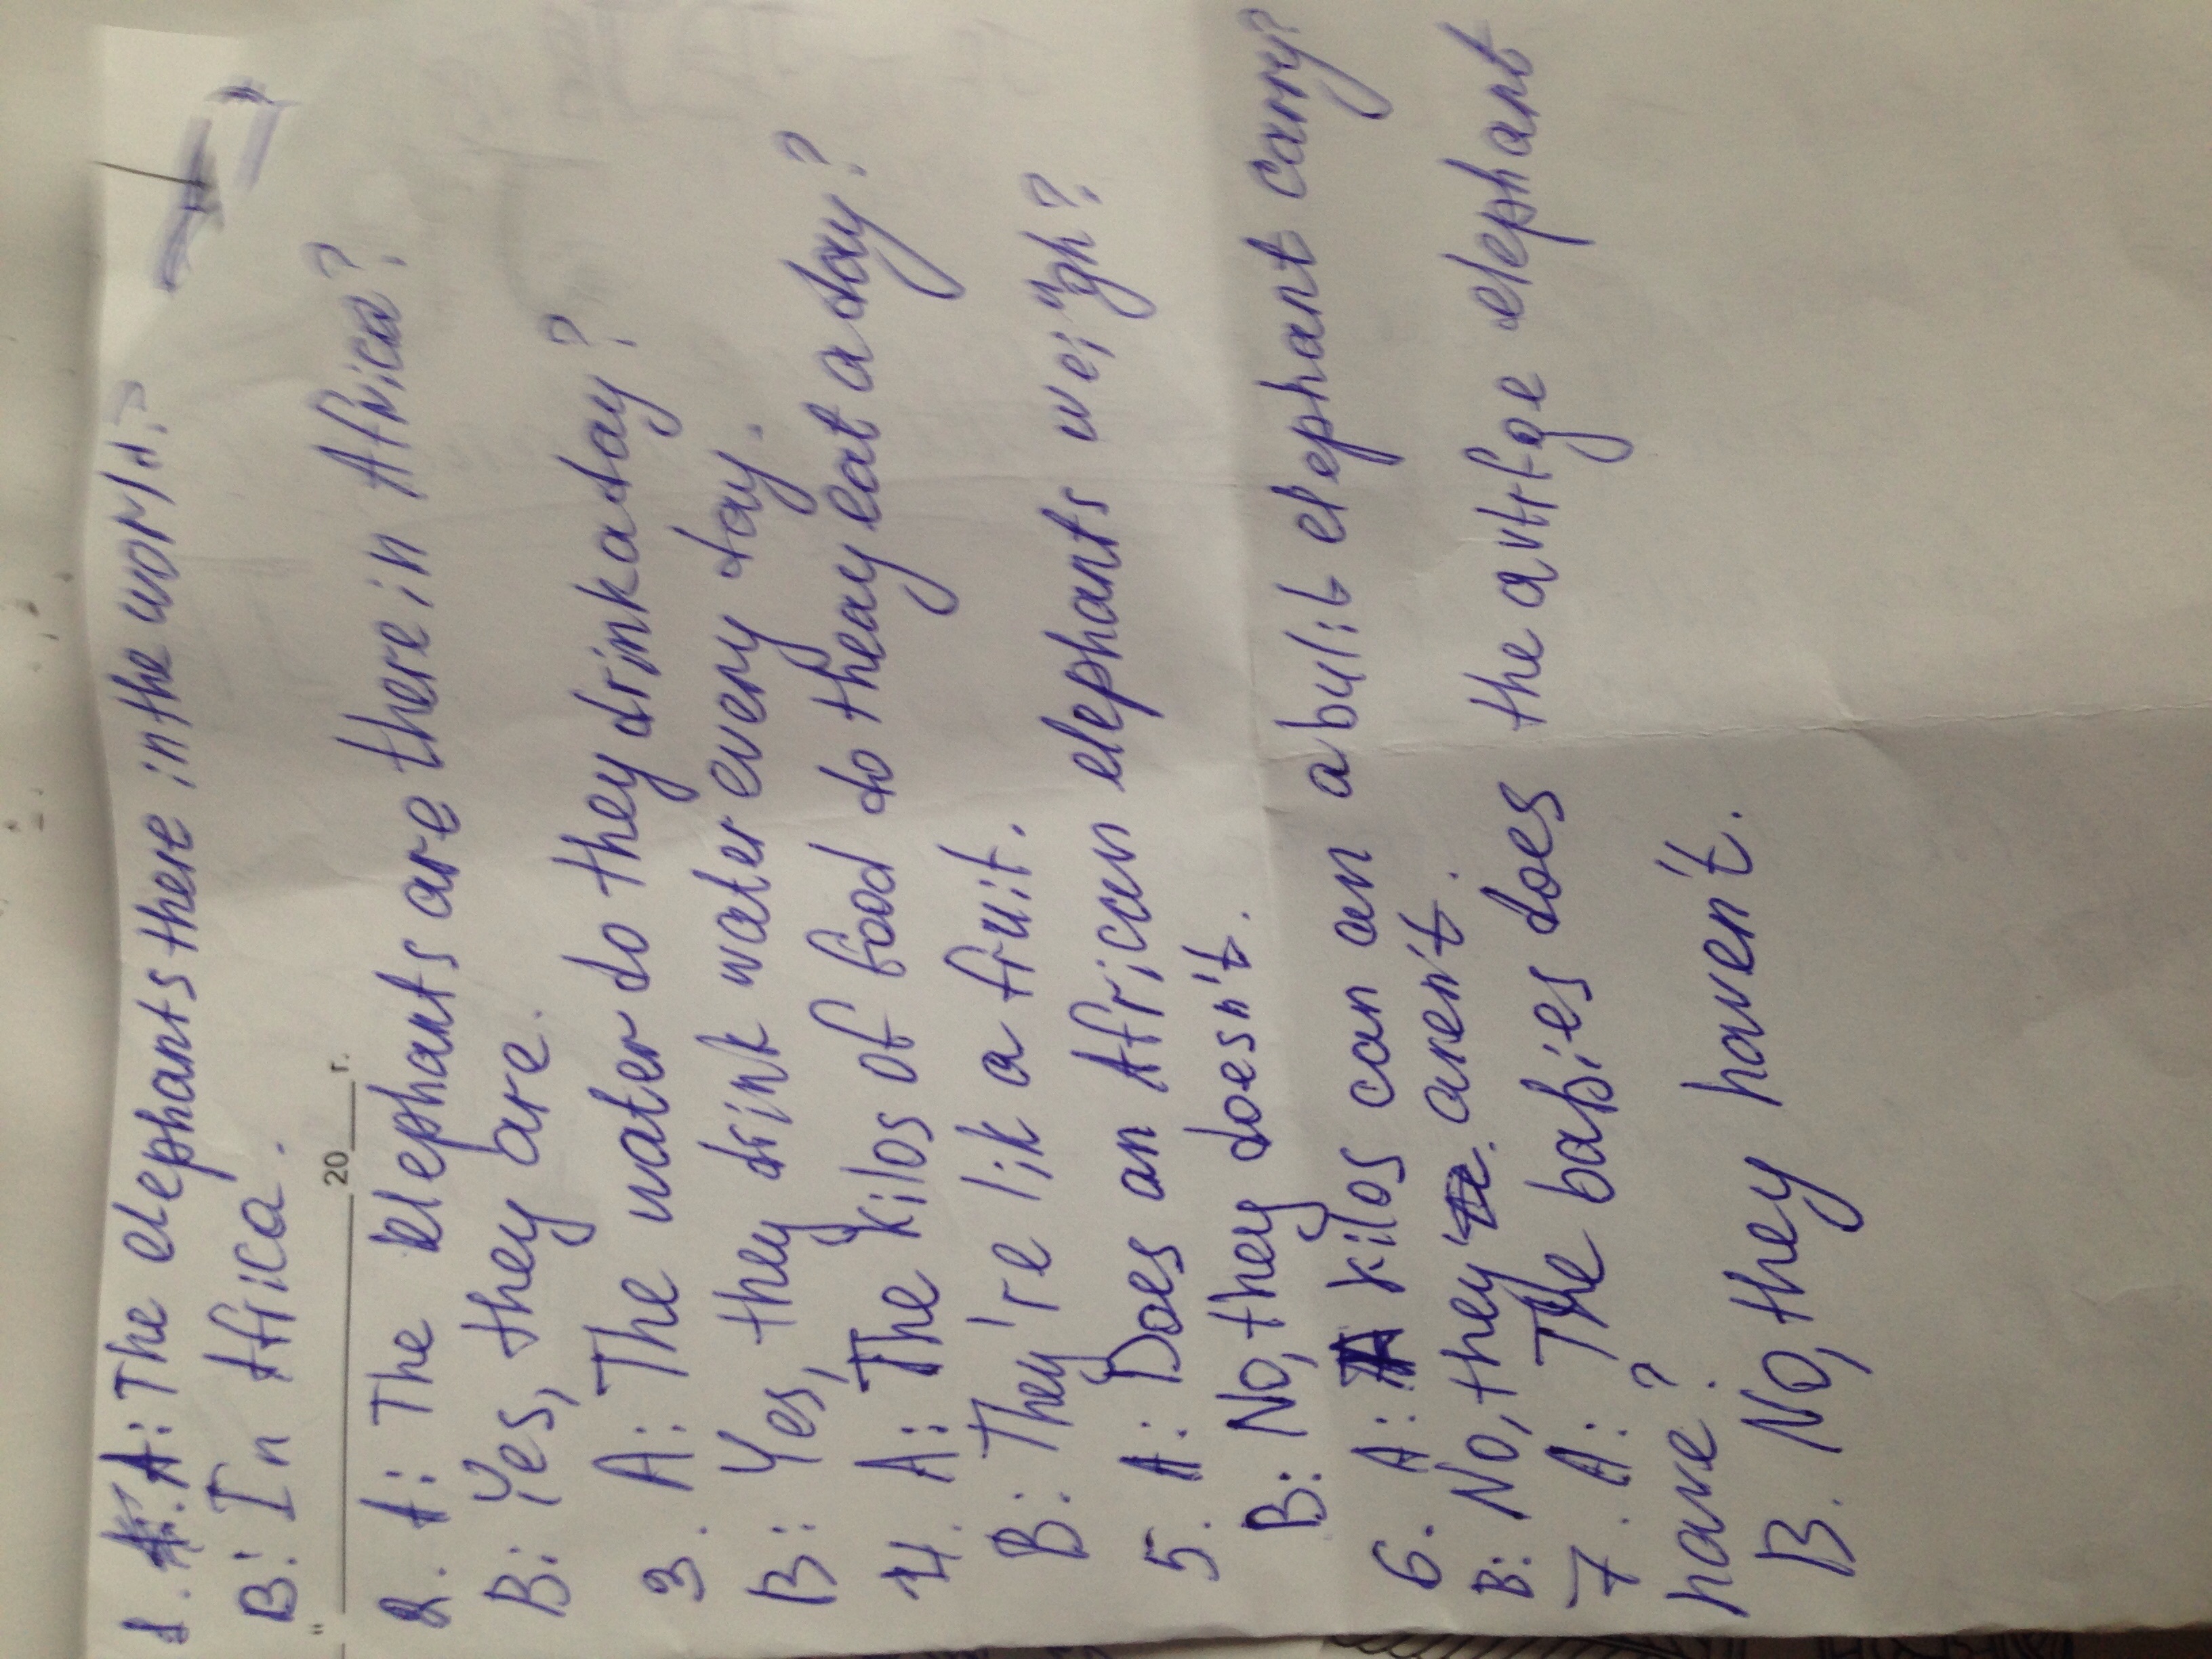 1. A: The elephants there in the world?
B: In Africa.
" 20 г.
2. A: The elephants are there in Africa?
B: Yes, they are.
3. A: The water do they drink a day?
B: Yes, they drink water every day.
4. A: The kilos of food do theay eat a day?
B: They're lik a fruit.
5. A: Does an African elephants weigh?
B: No, they doesn't.
6. A: kilos can an abulit elephant carry?
B: No, they aren't.
7. A: The babies does the elephant
have?
B. No, they haven't.